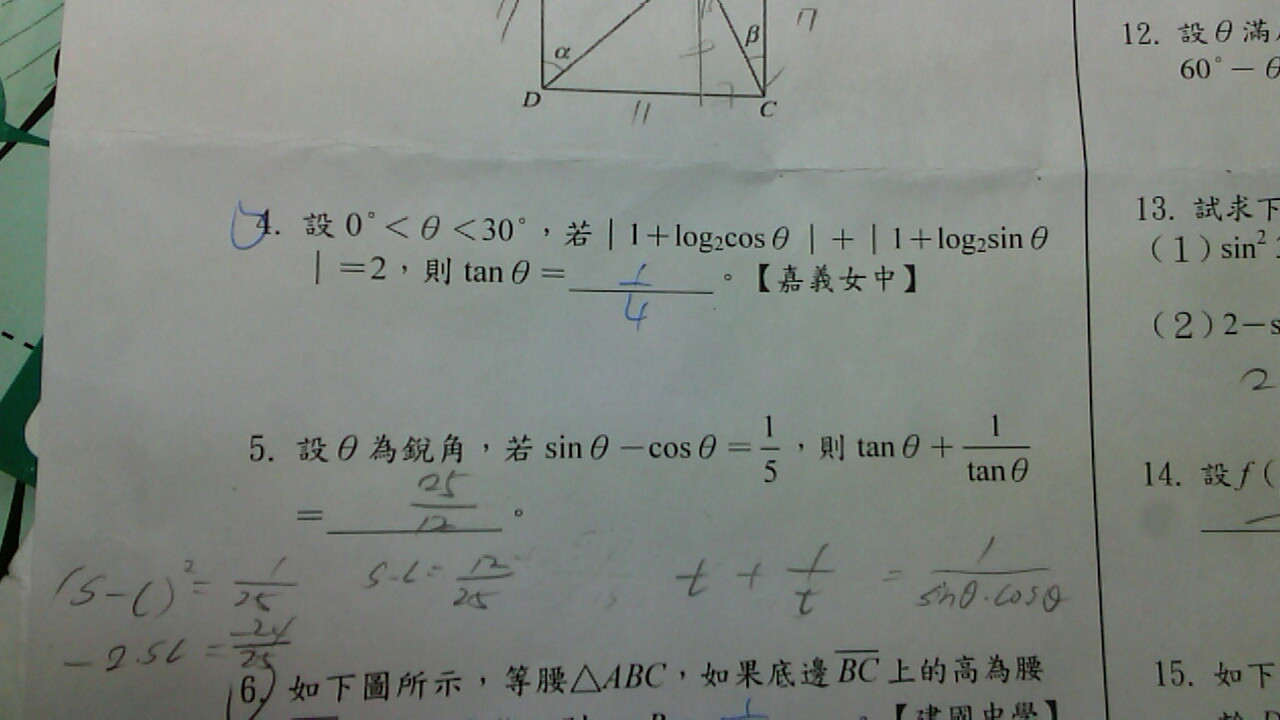 α
β
7
D
11
C
12. 設θ滿
60°－θ
4. 設 0°＜θ＜30°，若｜1＋log₂cosθ｜＋｜1＋log₂sinθ
｜＝2，則 tanθ＝ 1/4 。【嘉義女中】
13. 試求下
(1) sin²
(2) 2－s
2
5. 設θ為銳角，若 sinθ－cosθ＝1/5，則 tanθ＋1/tanθ
＝ 25/12 。
14. 設 f(
(s-c)²= 1/25
s·c= 12/25
t + 1/t = 1/sinθ·cosθ
-2·sc = -24/25
6. 如下圖所示，等腰△ABC，如果底邊BC上的高為腰
15. 如下
【建國中學】